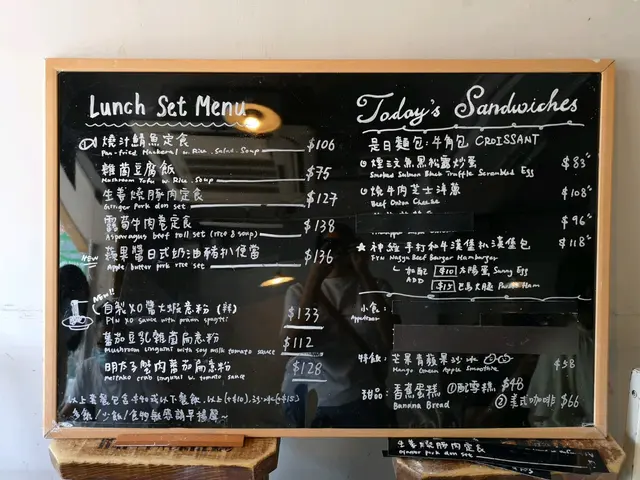 Lunch Set Menu
燒汁鯖魚定食 $106
Pan-fried Mackerel w. Rice, Salad, Soup
雜菌豆腐飯 $75
Mushroom Tofu w. Rice, Soup
生姜燒豚肉定食 $127
Ginger pork don set
露荀牛肉卷定食 $138
Asparagus beef roll set (rice & soup)
NEW 蘋果醬日式奶油豬扒便當 $136
Apple butter pork rice set
NEW!
自製XO醬大蝦意粉 (辣) $133
XO sauce with prawn
蕃茄豆乳雜菌扁意粉 $112
Mushroom linguini with soy milk tomato sauce
明太子蟹肉蕃茄扁意粉 $128
Mentako crab linguini w. tomato sauce
Today's Sandwiches
是日麵包: 牛角包 CROISSANT
煙三文魚黑松露炒蛋 $83
Smoked Salmon Black Truffle Scrambled Egg
燒牛肉芝士洋蔥 $108
Beef Onion Cheese
$96
神級手打和牛漢堡扒漢堡包 $118
Wagyu Beef Burger Hamburger
加配 $10 太陽蛋 Sunny Egg
ADD $15 巴馬火腿 Ham
小食:
特飲: 芒果青蘋果沙冰 $58
Mango Green Apple Smoothie
甜品: 香蕉蛋糕 ①配雪糕 $48
Banana Bread ② 美式咖啡 $66
生姜燒豚肉定食
Ginger pork don set